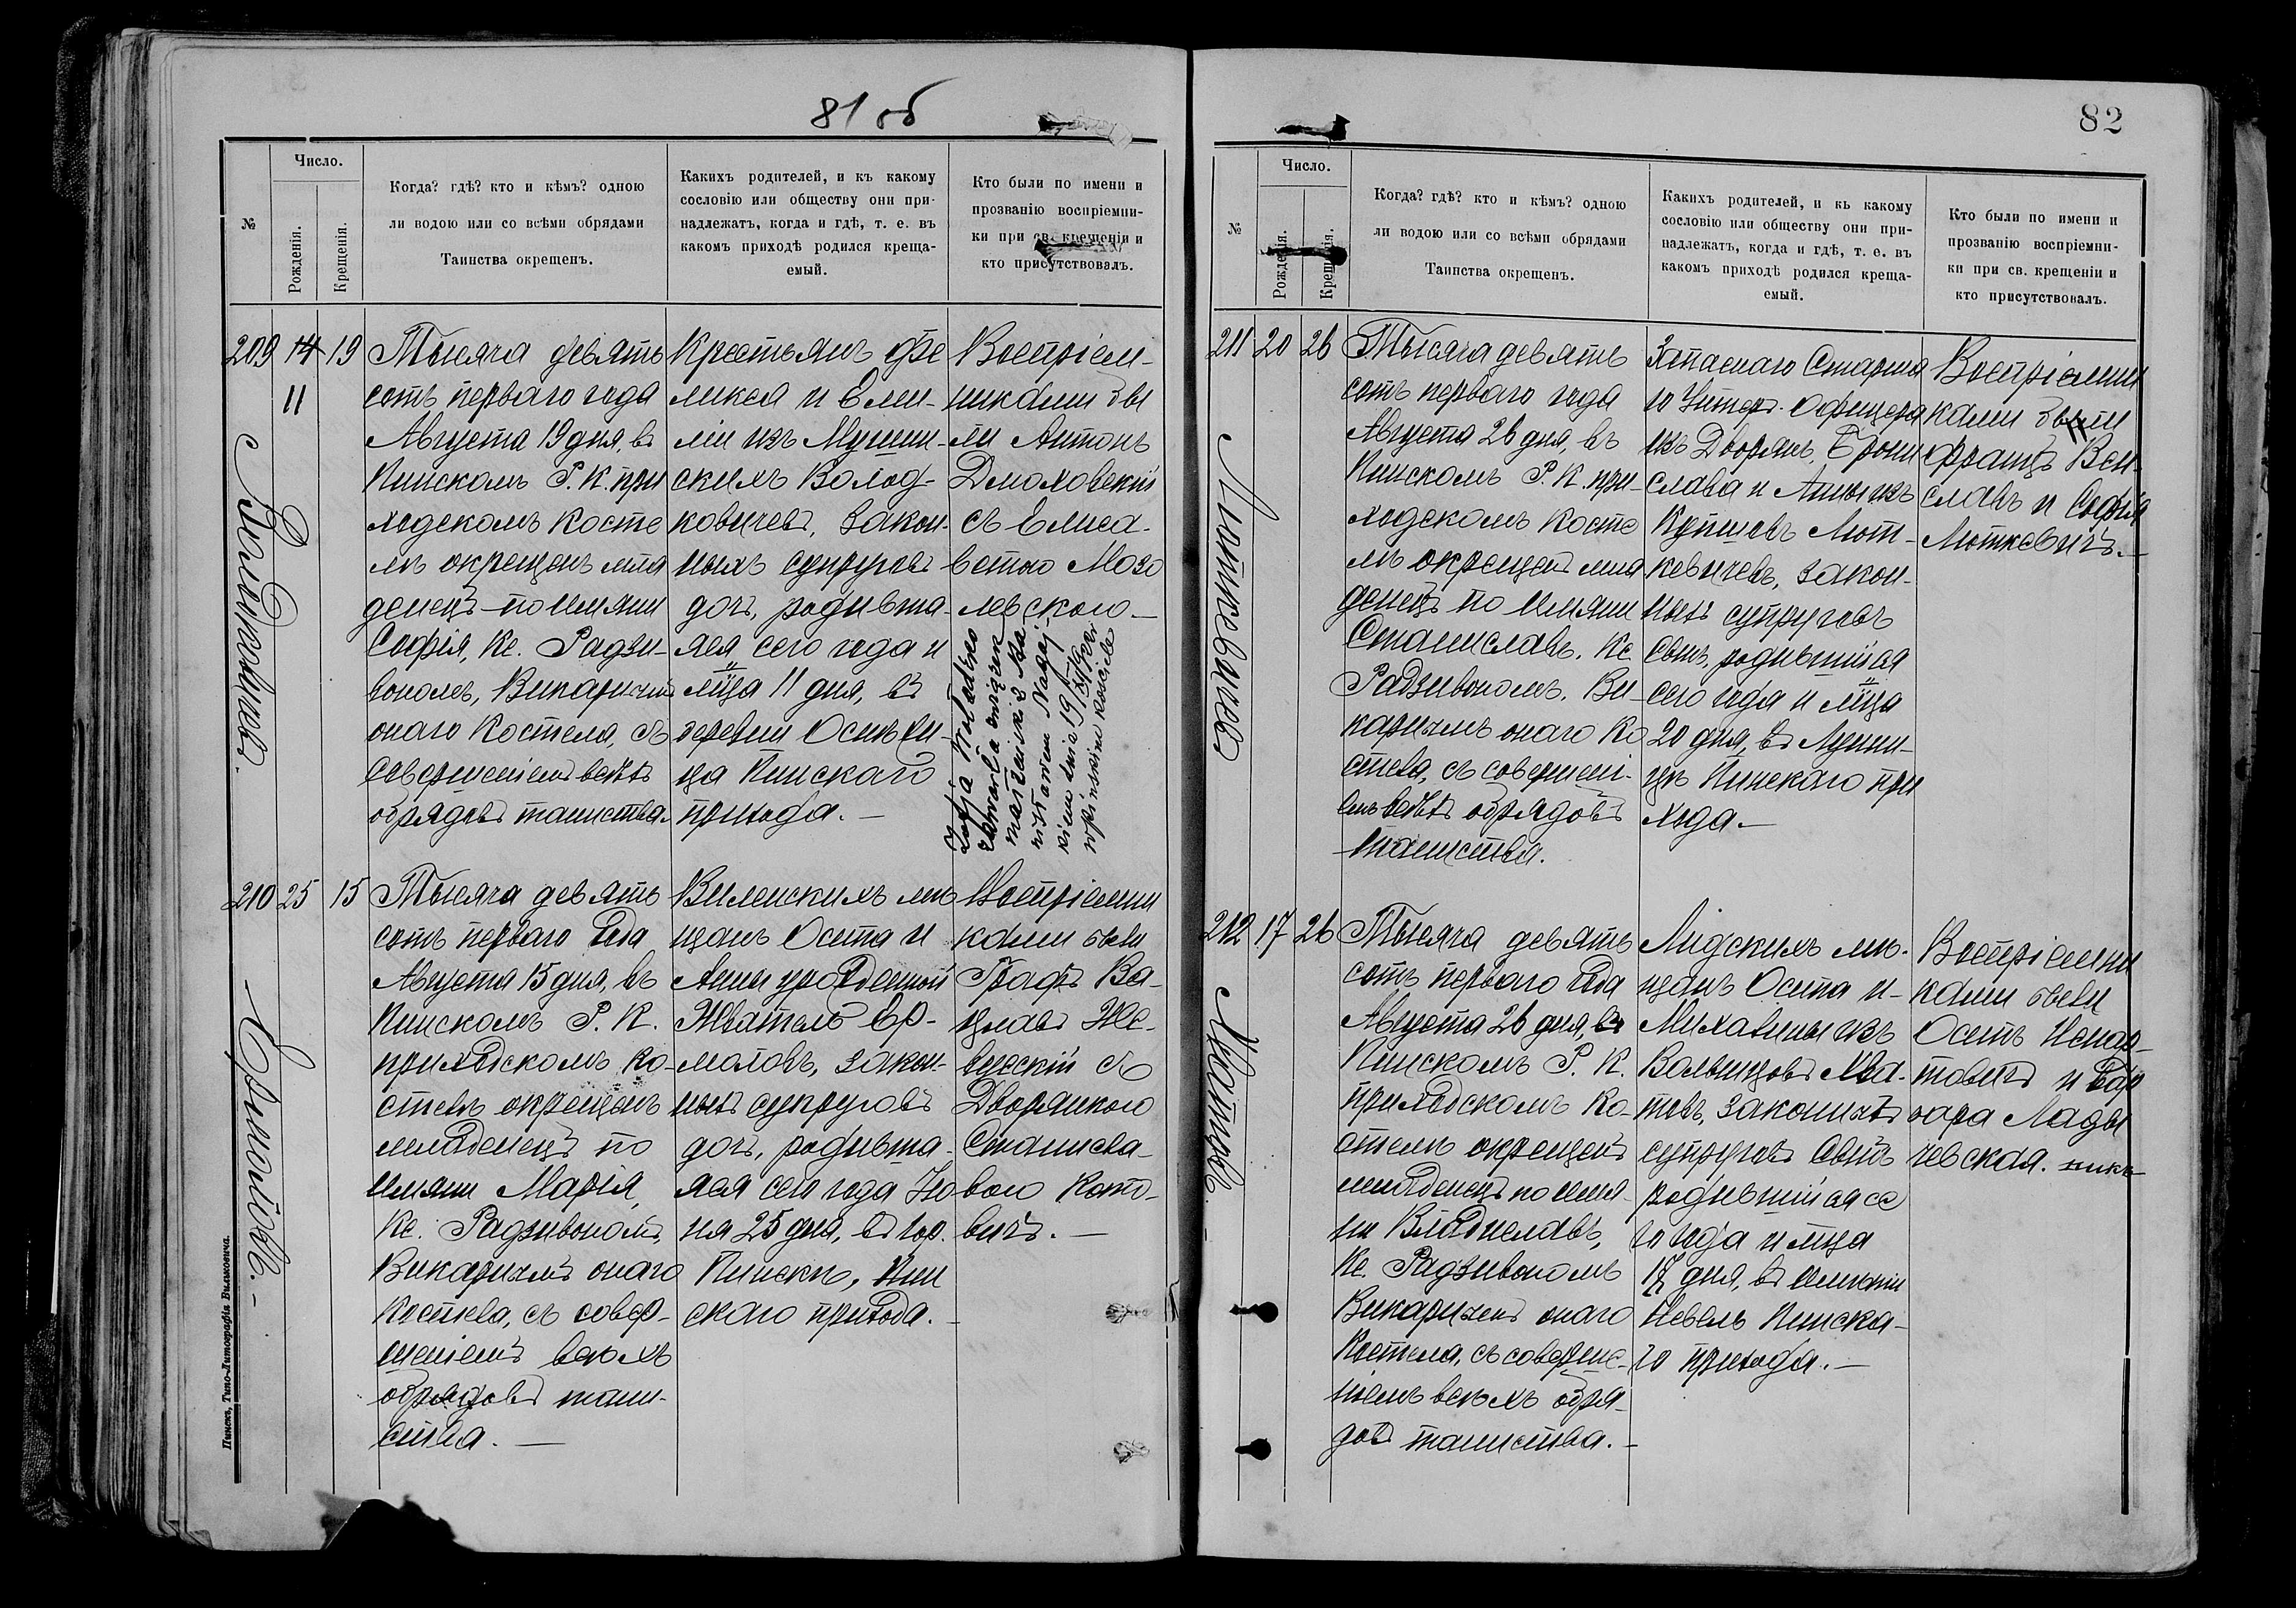 81 об
№
Число.
Рожденія.
Крещенія.
Когда? гдѣ? кто и кѣмъ? одною
ли водою или со всѣми обрядами
Таинства окрещенъ.
Какихъ родителей, и къ какому
сословію или обществу они при-
надлежатъ, когда и гдѣ, т. е. въ
какомъ приходѣ родился креща-
емый.
Кто были по имени и
прозванію воспріемни-
ки при св. крещеніи и
кто присутствовалъ.
209
14
11
19
Тысяча девять
сотъ перваго года
Августа 19 дня, въ
Пинскомъ Р. К. при
ходскомъ Косте
лѣ окрещенъ мла
денецъ по имяни
Софія, Кс. Радзи-
вономъ, Викаріемъ
онаго Костела, съ
совершеніемъ всѣхъ
обрядовъ таинства.
Крестьянъ Фе
ликса и Еми-
ліи изъ
скихъ Волод-
ковичевъ, закон-
ныхъ супруговъ
дочь, родивша-
яся сего года и
мца 11 дня, въ
деревни
ца Пинскаго
прихода. —
Воспріем-
никами бы
ли Антонъ
Дмоховскій
съ Елиса-
ветою Мозо
левскою —
Zofja
zawarła związek
małżeński z
nisławem
kiem dnia 19
w pińskim kościele
210
25
15
Тысяча девять
сотъ перваго года
Августа 15 дня, въ
Пинскомъ Р. К.
приходскомъ Ко-
стелѣ окрещенъ
младенецъ по
имяни Марія,
Кс. Радзивономъ,
Викаріемъ онаго
Костела, съ совер-
шеніемъ всѣхъ
обрядовъ таин-
ства. —
Виленскихъ мѣ
щанъ Осипа и
Анны урожденной
Ер-
моловъ, закон-
ныхъ супруговъ
дочь, родивша-
яся сего года Ію
ня 25 дня, въ гор.
Пинскѣ, Пин
скаго прихода. —
Воспріемни
ками были
Графъ Ва-
цлавъ Же-
вускій съ
Дворянкою
Станисла-
вою Кото-
вичъ. —
Ермоловъ. —
Пинскъ, Типо-Литографія Вильковича.
82
№
Число.
Рожденія.
Крещенія.
Когда? гдѣ? кто и кѣмъ? одною
ли водою или со всѣми обрядами
Таинства окрещенъ.
Какихъ родителей, и къ какому
сословію или обществу они при-
надлежатъ, когда и гдѣ, т. е. въ
какомъ приходѣ родился креща-
емый.
Кто были по имени и
прозванію воспріемни-
ки при св. крещеніи и
кто присутствовалъ.
211
20
26
Тысяча девять
сотъ перваго года
Августа 26 дня, въ
Пинскомъ Р. К. при-
ходскомъ Косте
лѣ окрещенъ мла
денецъ по имяни
Станиславъ, Кс.
Радзивономъ, Ви-
каріемъ онаго Ко
стела, съ совершені-
емъ всѣхъ обрядовъ
таинства.
Запаснаго Старша
го Унтеръ-Офицера
изъ Дворянъ, Брони
слава и Анны изъ
Лют-
кевичевъ, закон-
ныхъ супруговъ
сынъ, родившійся
сего года и мца
20 дня, въ Лунин-
цѣ Пинскаго при
хода. —
Воспріемни
ками были
Францъ
славъ и Софія
Люткевичъ. —
Люткевичевъ
212
17
26
Тысяча девять
сотъ перваго года
Августа 26 дня, въ
Пинскомъ Р. К.
приходскомъ Ко-
стелѣ окрещенъ
младенецъ по имя-
ни Владиславъ,
Кс. Радзивономъ
Викаріемъ онаго
Костела, съ соверше-
ніемъ всѣхъ обря-
довъ таинства. —
Лидскихъ мѣ-
щанъ Осипа и
Михалины изъ
законныхъ
супруговъ сынъ
родившійся се
го года и мца
17 дня, въ имѣніи
Невель Пинска-
го прихода. —
Воспріемни
ками были
Осипъ
и Вар
вара Лады
чевская.